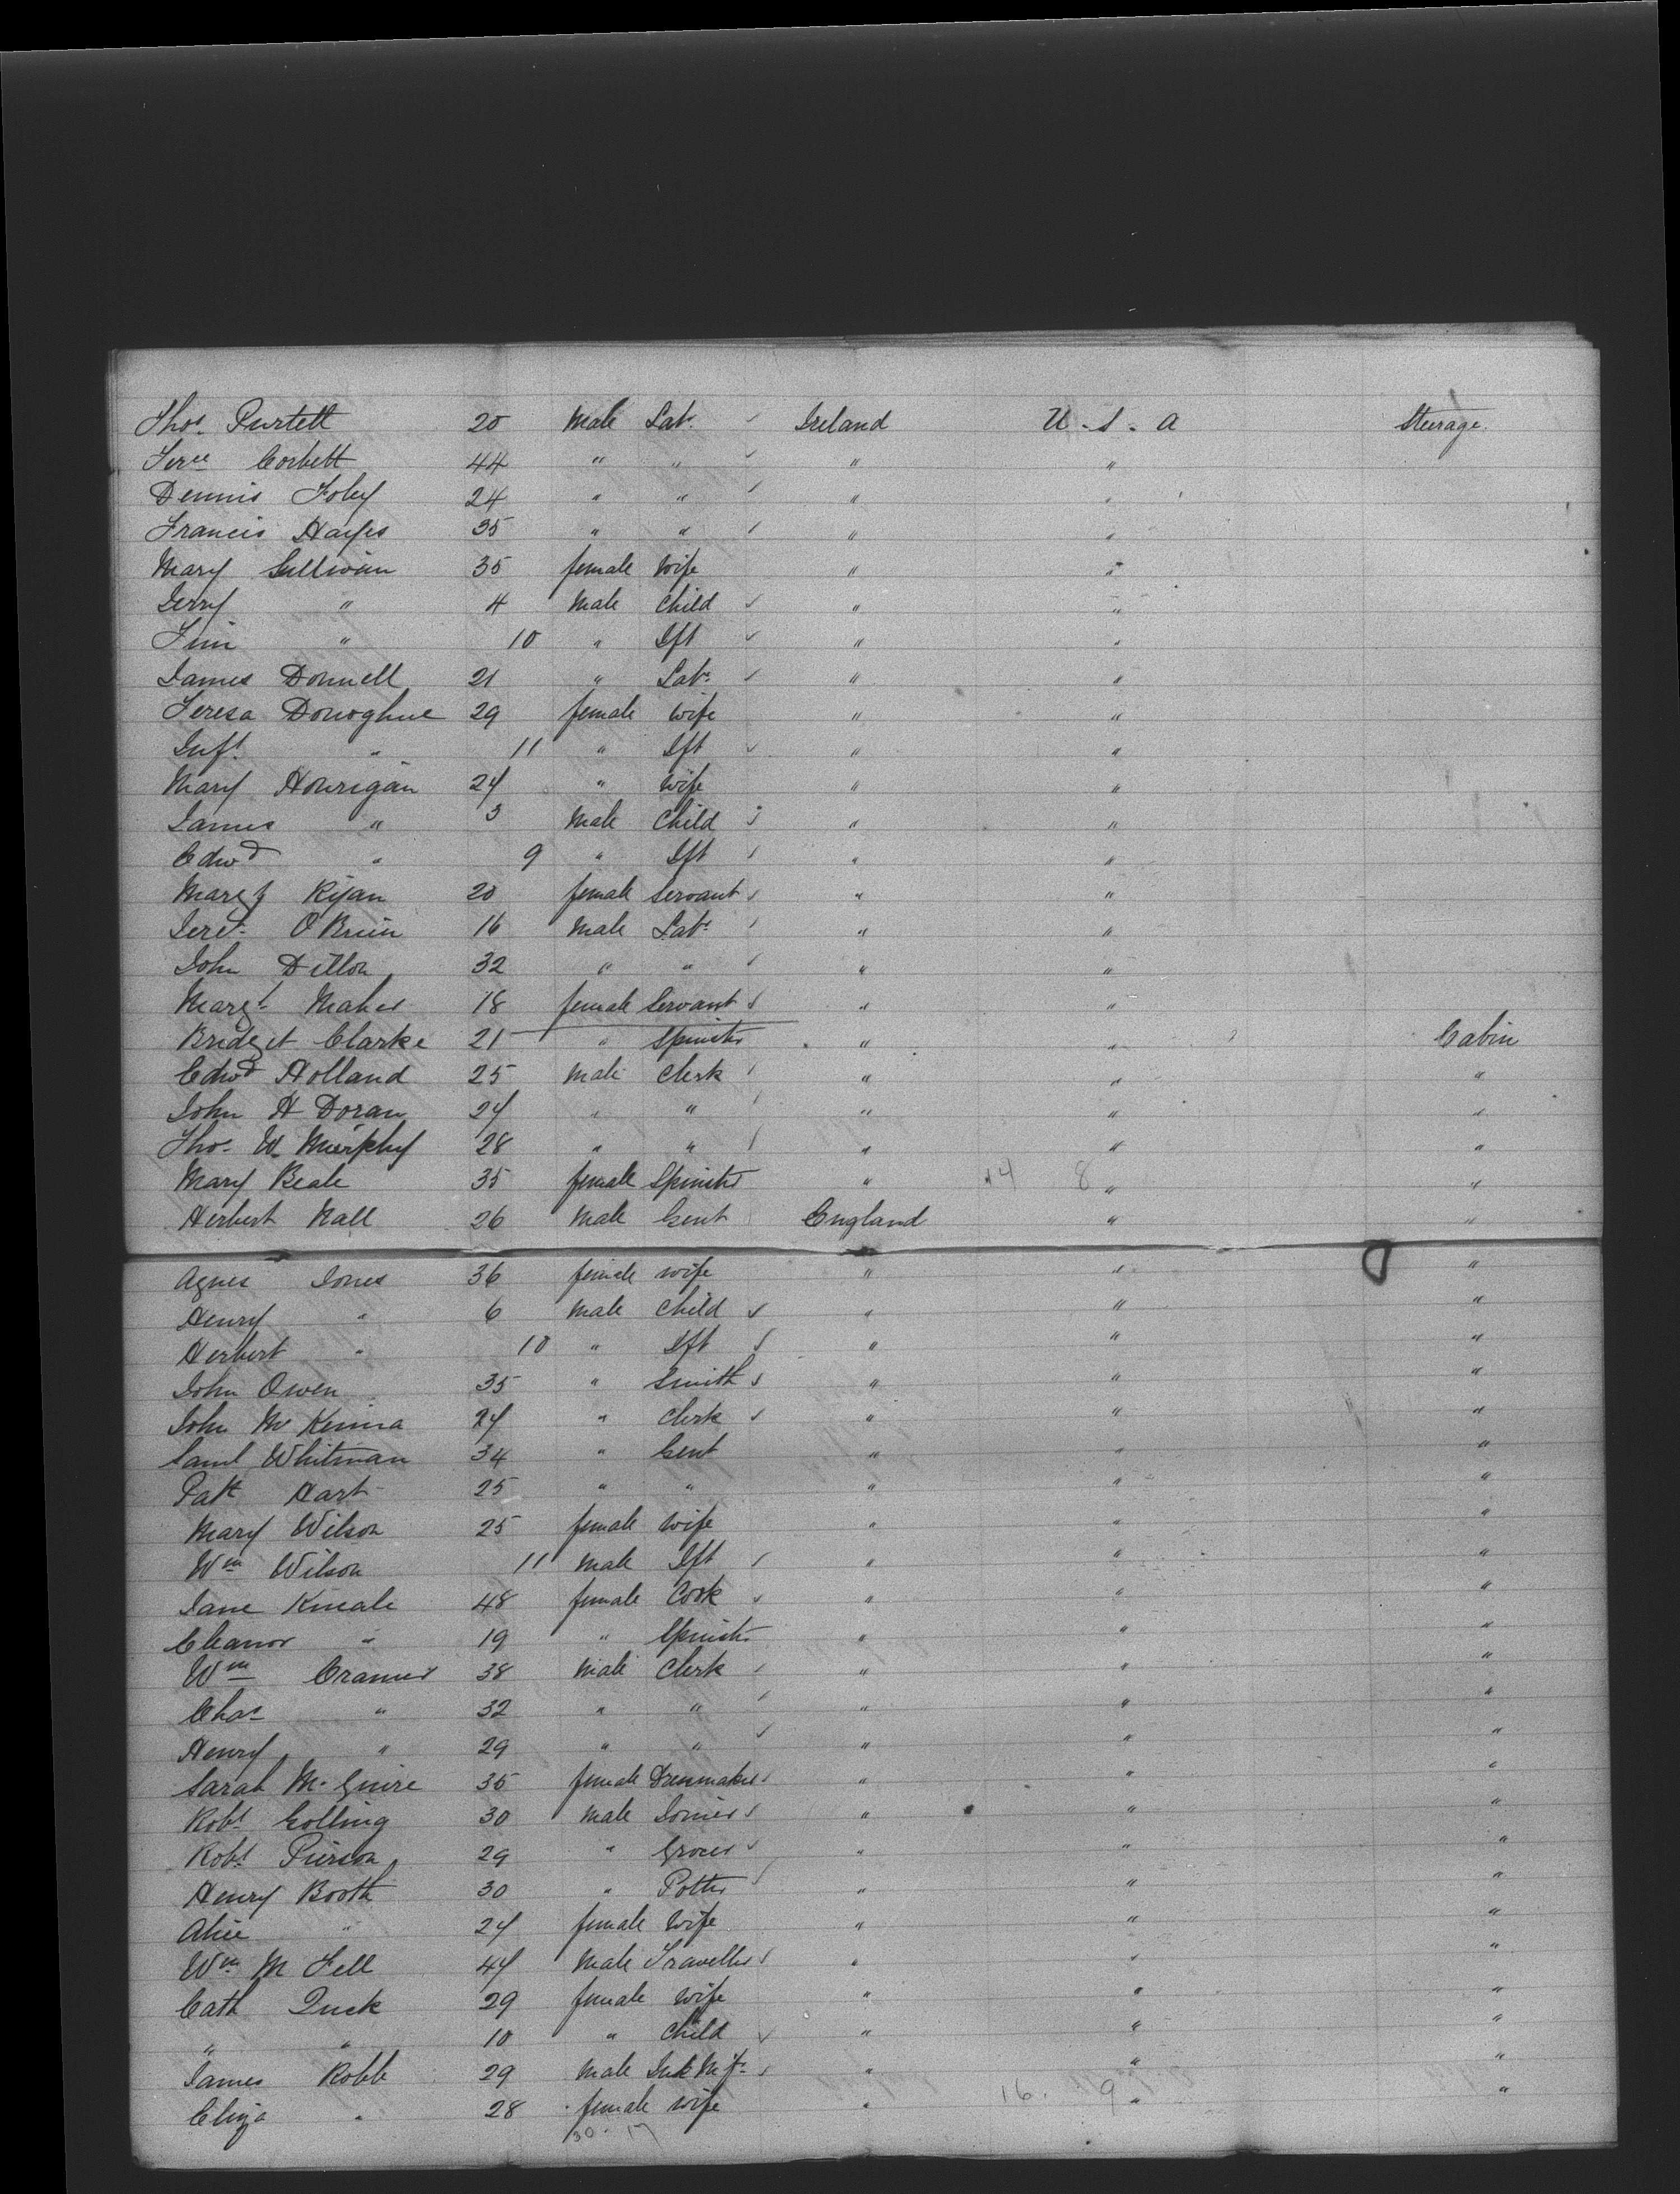 Thos. Purtell 20 Male Labr. Ireland U.S.A Steerage.
Jere Corbett 44 " " " "
Dennis Foley 24 " " " "
Francis Hayes 35 " " " "
Mary Sullivan 35 female wife " "
Jerry " 4 Male Child " "
Tim " 10 " Ift " "
James Donnell 21 " Labr. " "
Teresa Donoghue 29 female wife " "
Inft. " 11 " Ift " "
Mary Hourigan 24 " wife " "
James " 3 Male Child " "
Edwd " 9 " Ift " "
Margt Ryan 20 female Servant " "
Jere. O'Brien 16 Male Labr. " "
John Dillon 32 " " " "
Margt. Maher 18 female Servant " "
Bridget Clarke 21 " Spinster " " Cabin
Edwd Holland 25 Male Clerk " " "
John H Doran 24 " " " " "
Thos. W. Murphy 28 " " " " "
Mary Beale 35 female Spinster " 14 8 " "
Herbert Nall 26 Male Gent England " "
Agnes Jones 36 female wife " " "
Henry " 6 Male Child " " "
Herbert " 10 " Ift " " "
John Owen 35 " Smith " " "
John McKenna 24 " Clerk " " "
Saml Whitman 34 " Gent " " "
Patk Hart 25 " " " " "
Mary Wilson 25 female wife " " "
Wm Wilson 11 Male Ift " " "
Jane Kneale 48 female Cook " " "
Eleanor " 19 " Spinster " " "
Wm Cramer 38 Male Clerk " " "
Chas " 32 " " " " "
Henry " 29 " " " " "
Sarah McGuire 35 female Dressmaker " " "
Robt. Golling 30 Male Joiner " " "
Robt. Pierson 29 " Grocer " " "
Henry Booth 30 " Potter " " "
Alice " 24 female wife " " "
Wm M Fell 44 Male Traveller " " "
Cath Quck 29 female wife " " "
" " 10 " Child " " "
James Robb 29 Male " " "
Eliza " 28 female wife " 16. 9 " "
30. 17